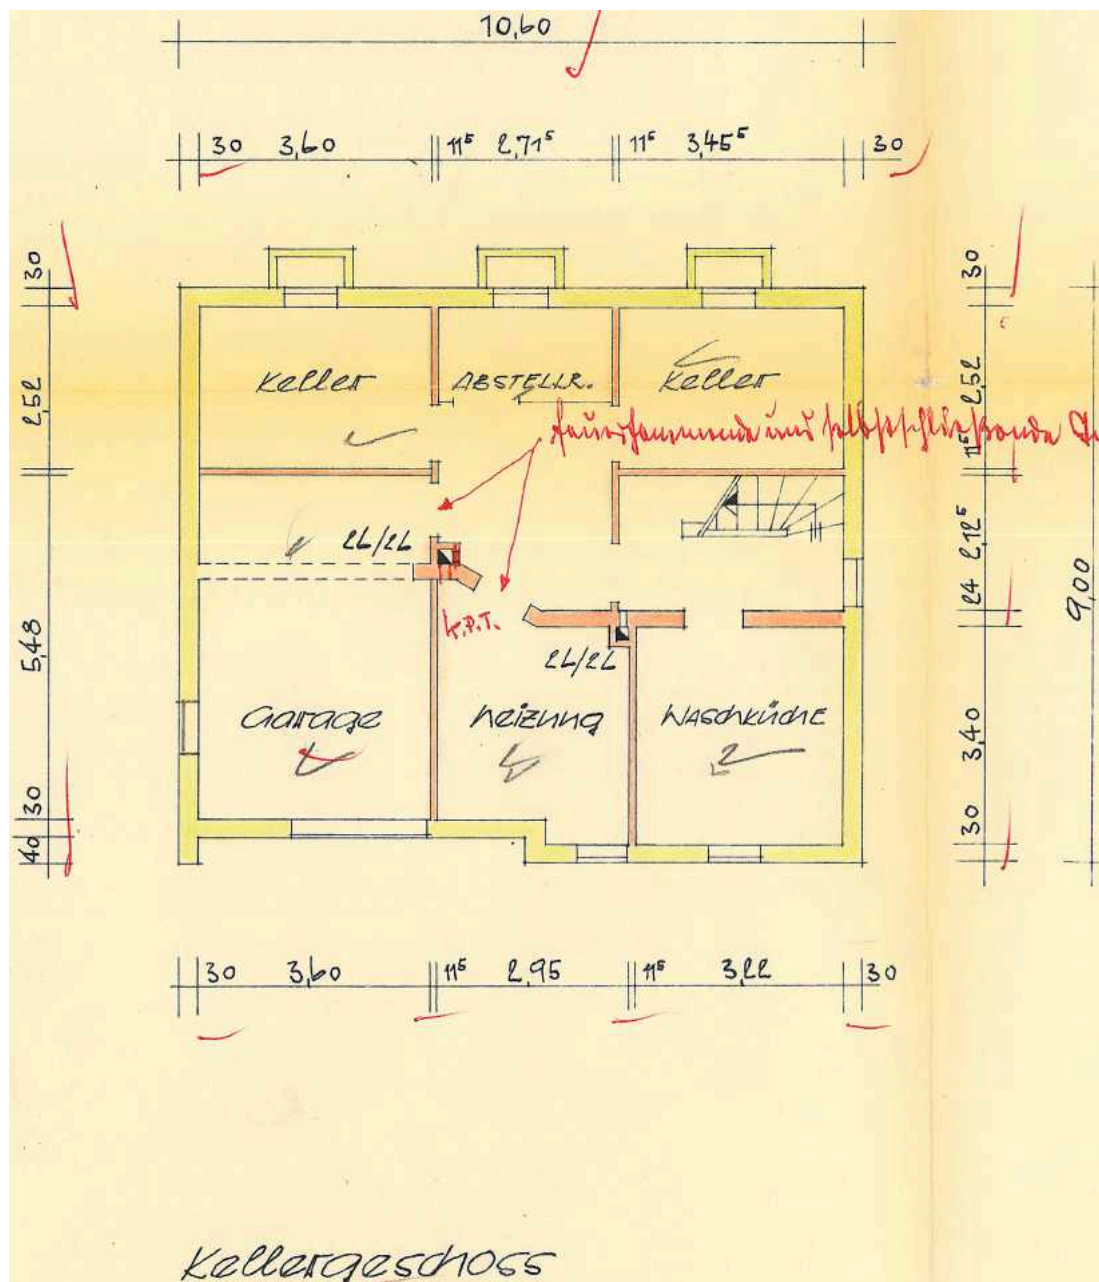 10,60
30 3,60 11⁵ 2,71⁵ 11⁵ 3,45⁵ 30
30
2,52
5,48
30
40
30
2,52
11⁵
2,12⁵
24
3,40
30
9,00
Keller
ABSTELLR.
Keller
feuerhemmende und selbstschließende
2L/2L
K.P.T.
2L/2L
Garage
Heizung
WASCHKÜCHE
30 3,60 11⁵ 2,95 11⁵ 3,22 30
Kellergeschoss